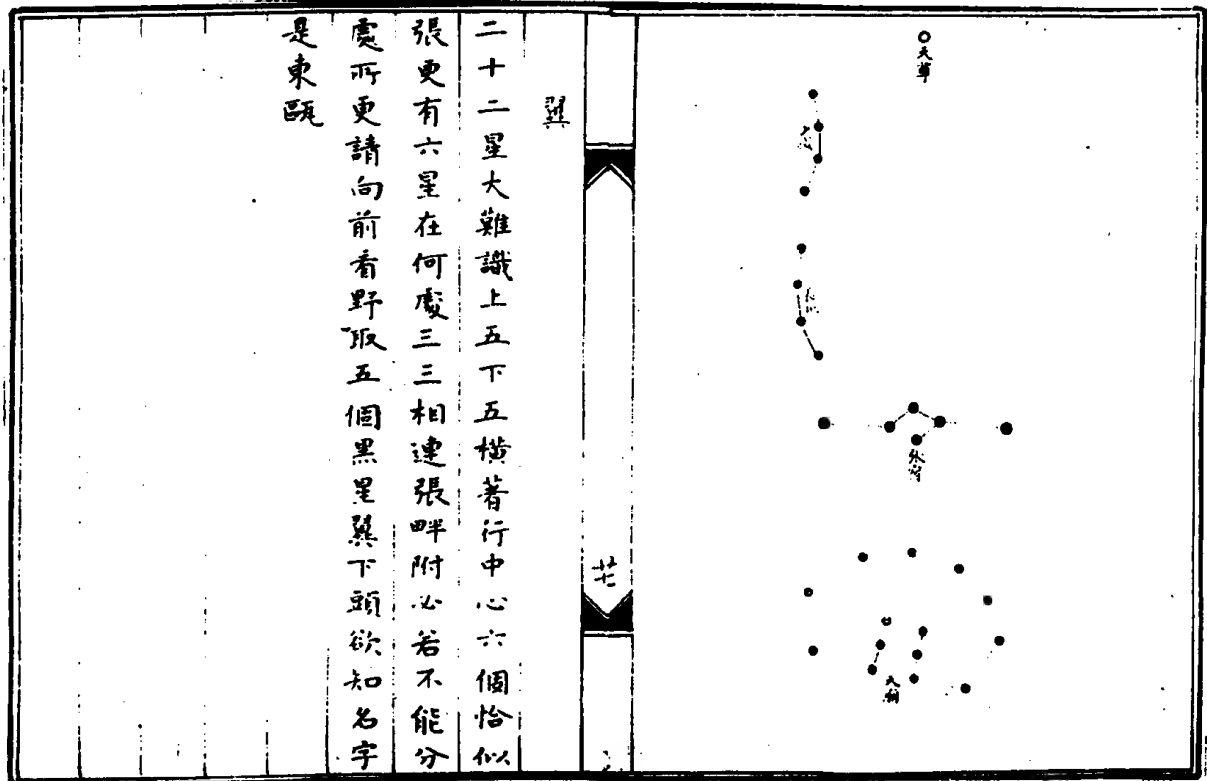 天尊
少微
長垣
張宿
天廟
廿七
翼
二十二星大難識上五下五橫著行中心六個恰似
張更有六星在何處三三相連張畔附必若不能分
處所更請向前看野取五個黑星翼下頭欲知名字
是東甌